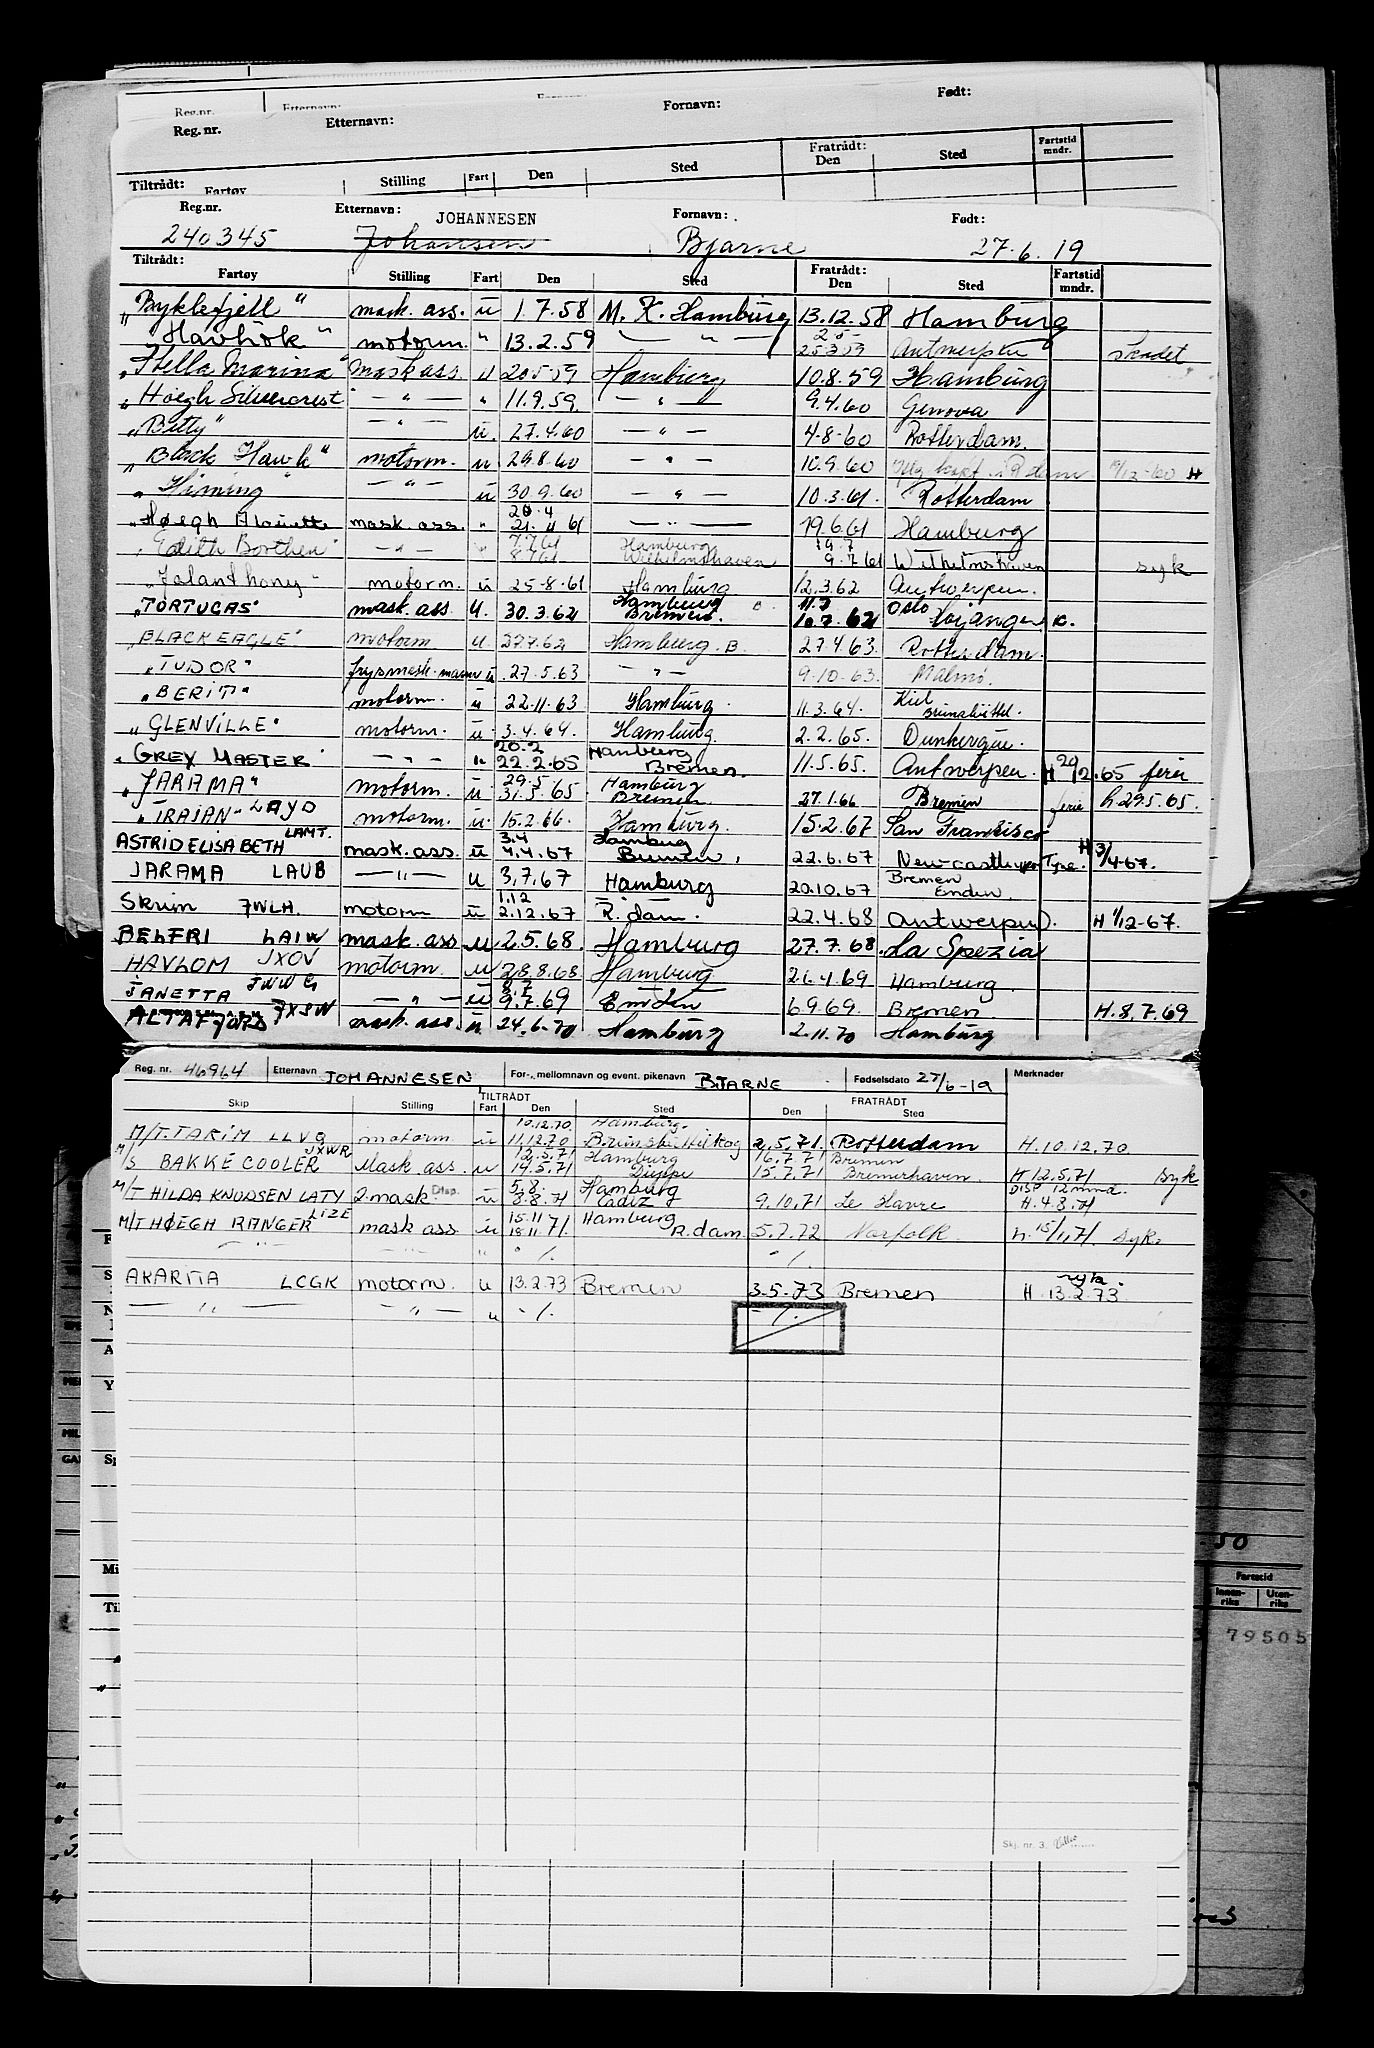 Reg.nr. Etternavn:
Reg.nr. Etternavn: Fornavn: Født:
Tiltrådt: Fartøy Stilling Fart Den Sted Fratrådt: Den Sted Fartstid mndr.
Reg.nr. Etternavn: JOHANNESEN Fornavn: Født:
240345 Johansen Bjarne 27.6.19
Tiltrådt: Fratrådt:
Fartøy Stilling Fart Den Sted Den Sted Fartstid mndr.
„Byklefjell" mask. ass. u 1.7.58 M. K. Hamburg 13.12.58 Hamburg
Havhök " motorm. " 13.2.59 — " — 25.3.59 Antwerpen skadet
„Stella Marina" Mask ass. u 20.5.59 Hamburg 10.8.59 Hamburg
„Höegh Silvercrest — " — " 11.9.59 — " — 9.4.60 Genova
„Betty" — " — u. 27.4.60 — " — 4-8-60 Rotterdam.
„Black Hawk" motorm. u 29.8.60 — " — 10.9.60 19/12-60 H
„Himing" — " — u 30.9.60 — " — 10.3.61. Rotterdam
20.4
„Høegh Alouette mask. ass. " 21. 4 61 — " — 19.6.61 Hamburg
7.7.61 Hamburg 19.7
„Edith Borthen" — " — " 8.7.61 Wilhelmshaven 9.7.61 Wilhelmshaven syk
„Jalanthony" motorm. u 25-8-61 Hamburg 12.3.62 Antwerpen.
Hamburg 11.7 Oslo
„TORTUGAS" mask. ass. u. 30.3.62 Bremen. 10.7.62 Höjanger K.
„BLACK EAGLE" motorm. u. 27.7.62 Hamburg. B. 27.4.63. Rotterdam.
„TUDOR" frysmask.mann u. 27.5.63 — " — 9-10-63. Malmö.
Kiel
„BERIT" motorm. u 22.11.63 Hamburg. 11.3.64. Brunsbüttel.
„GLENVILLE" motorm. u. 3.4.64. Hamburg. 2.2.65. Dunkerque.
20.2 Hamburg
„GREY MASTER — " — u. 22.2.65 Bremen. 11.5.65. Antwerpen. H 20/2.65 ferie
29.5 Hamburg
„JARAMA" motorm. u. 31.5.65 Bremen 27.1.66 Bremen ferie h.29.5.65.
„TRAJAN" LAYD motorm. u. 15.2.66. Hamburg. 15.2.67 San Francisco
LAMT. 3.4 Hamburg
ASTRID ELISABETH mask.ass. u 4.4.67 Bremen, 22.6.67 Newcastle Tyne. H 3/4-67.
Bremen
JARAMA LAUB — " — u 3.7.67 Hamburg 20.10.67 Emden
1.12
Skrim JWLH. motorm u 2.12.67 R.dam. 22.4.68 Antwerpen. H 1/12-67.
BELFRI LAIW mask. ass u 2.5.68. Hamburg 27.7.68 La Spezia
HAVLOM JXOV motorm. u 28.8.68. Hamburg 26.4.69 Hamburg.
8.7
JANETTA JWWG — " — u 9.7.69 Emden 6.9.69. Bremen. H.8.7.69
ALTAFJORD JXSW mask. ass. u 24.6.70 Hamburg 2.11.70 Hamburg
Reg. nr. 46964 Etternavn JOHANNESEN For-, mellomnavn og event. pikenavn BJARNE Fødselsdato 27/6-19 Merknader
TILTRÅDT FRATRÅDT
Skip Stilling Fart Den Sted Den Sted
10.12.70. Hamburg.
M/T. TARIM LLVQ motorm u 11.12.70 2.5.71. Rotterdam H. 10.12.70
JXWR 12.5.71 Hamburg 16.7.71 Bremen
M/S BAKKE COOLER Mask ass. u 14.5.71 Dieppe 15.7.71 Bremerhaven. H 12.5.71 syk
5.8. Hamburg DISP 12 mnd.
M/T HILDA KNUDSEN LATY 2.mask. Disp. u 8.8.71 Cadiz 9.10.71 Le Havre H. 4.8.71
LIZE 15.11 Hamburg
M/T HØEGH RANGER mask ass u 18.11.71. R.dam 5.7.72 Norfolk h. 15/11.71. syk.
— " — — " — " " /. " /.
AKARITA LCGK motorm. u 13.2.73 Bremen 3.5.73 Bremen H. 13.2.73
— " — — " — " - /. - /.
Skj. nr. 3.
50
Fartstid
Innenriks Utenriks
79505